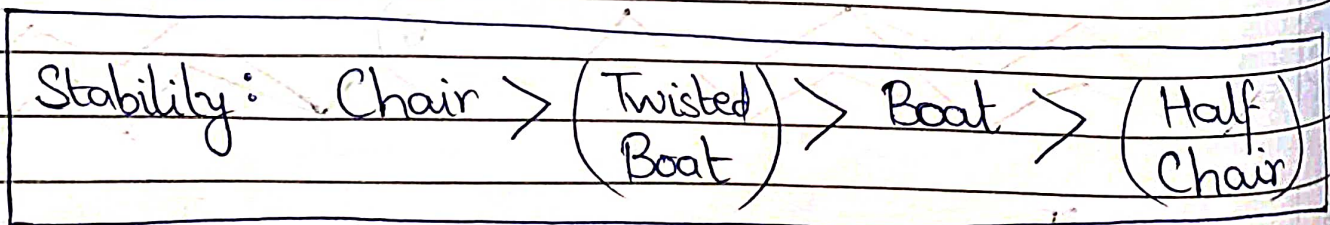 Stability: Chair > (Twisted Boat) > Boat > (Half Chair)